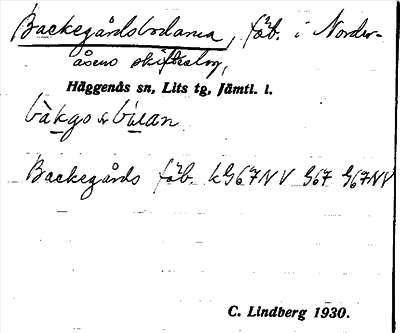 Backegårdsbodarna, fäb. i Norder-
åsens skifteslag,
Häggenås sn, Lits tg, Jämtl. l.
Backegårds fäb. kG67NV G67 G67NV
C. Lindberg 1930.